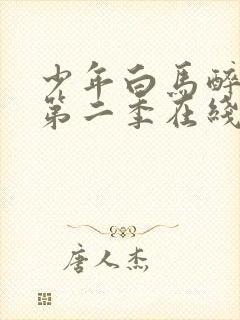 少年白馬醉
第二季在綫
唐人杰